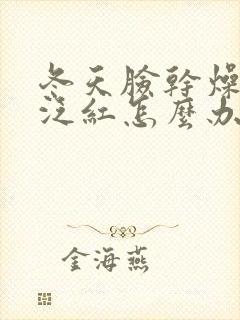 冬天臉幹燥
泛紅怎麼办
金海燕